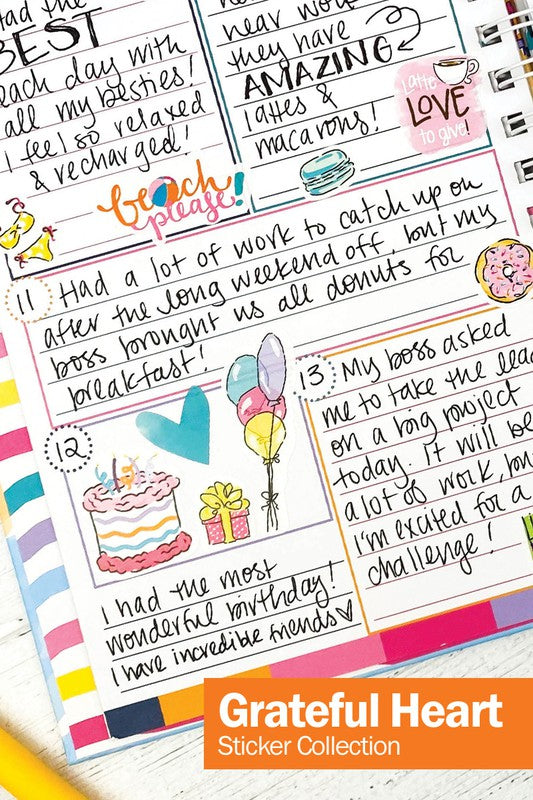 had the
BEST
each day with
all my besties!
I feel so relaxed
& recharged!
near work
they have
AMAZING
lattes &
macarons!
Latte
LOVE
to give!
beach
please!
11
Had a lot of work to catch up on
after the long weekend off, but my
boss brought us all donuts for
breakfast!
12
I had the most
wonderful birthday!
I have incredible friends
13
My boss asked
me to take the lead
on a big project
today. It will be
a lot of work, but
I'm excited for a
challenge!
Grateful Heart
Sticker Collection